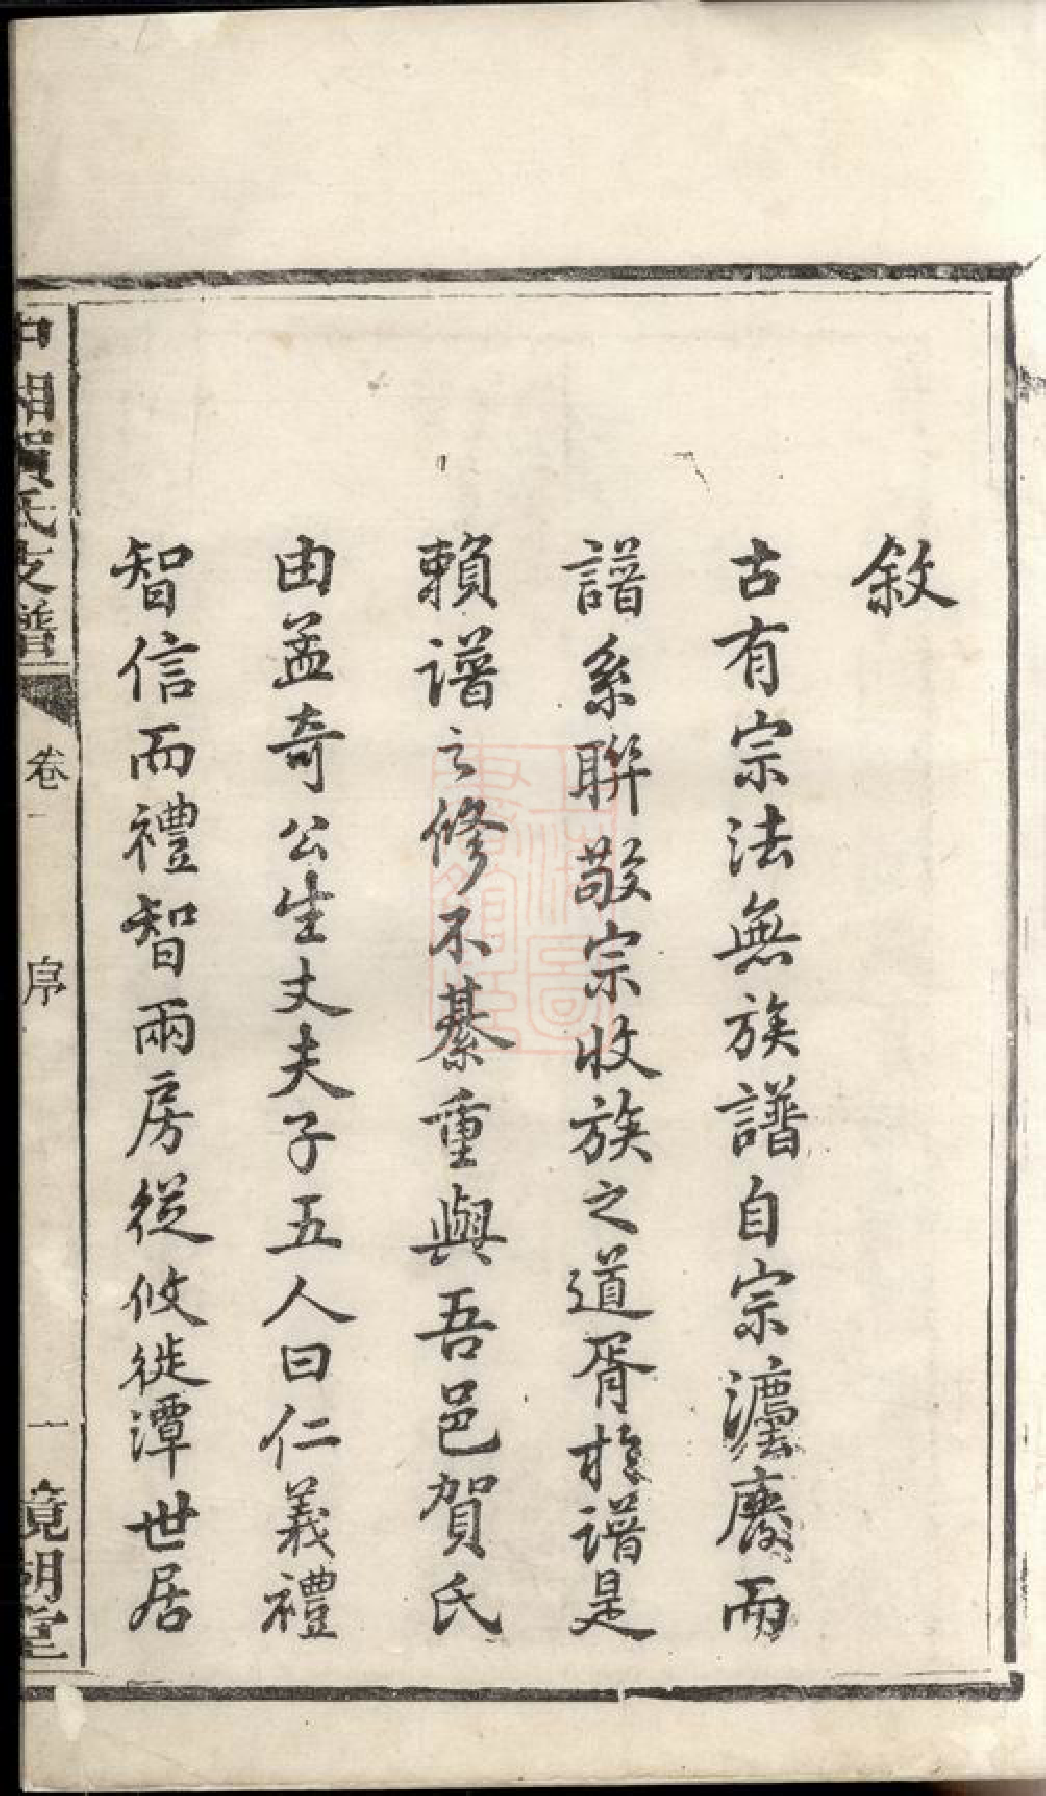 敘
古有宗法無族譜自宗灋廢而
譜系聯敬宗收族之道胥於譜是
賴譜之修不綦重與吾邑賀氏
由孟奇公生丈夫子五人曰仁義禮
智信而禮智兩房從攸徙潭世居
中湘賀氏支譜
卷一
序
一
竟胡堂
上海圖書館藏